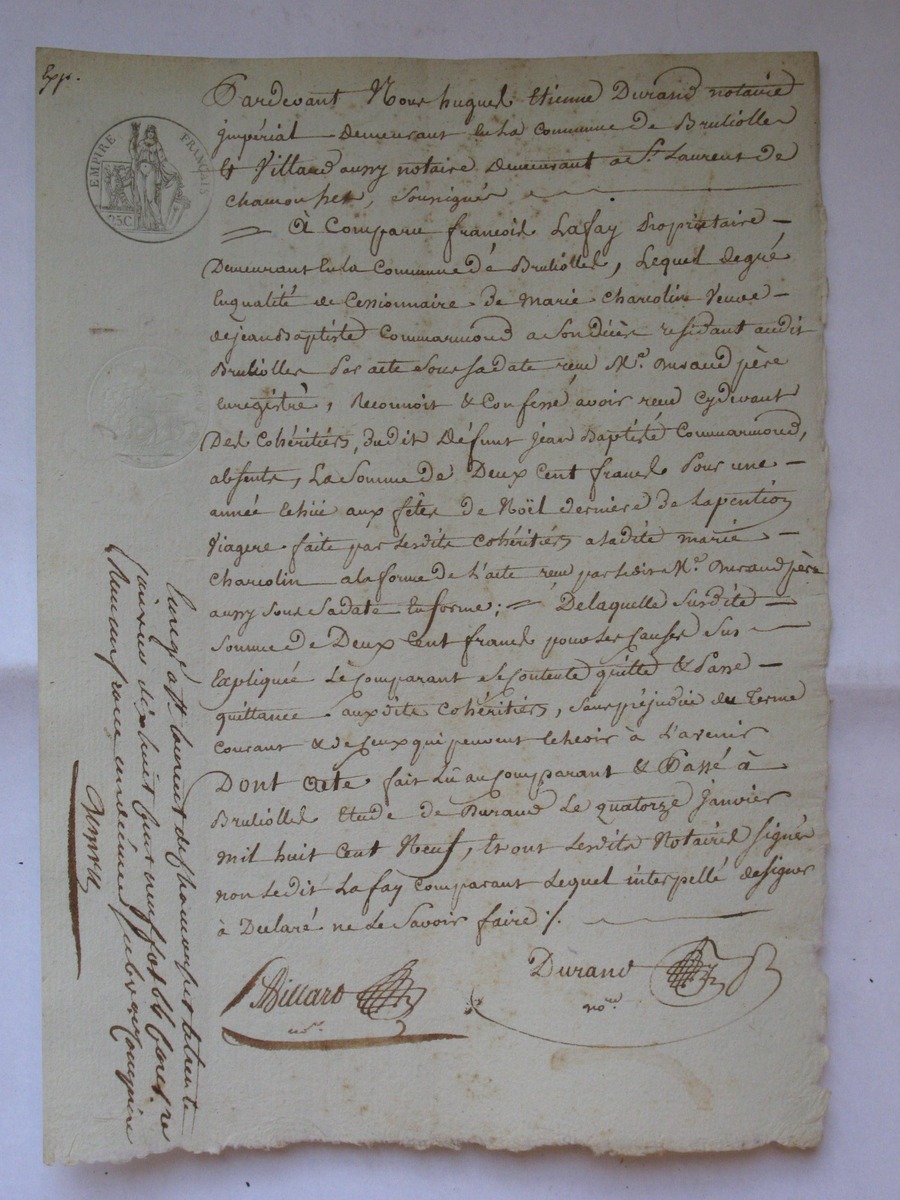 Exp.
EMPIRE FRANÇAIS
25C
Pardevant Nous hugues Etienne Durand notaire
jmpérial Demeurant en La Commune de Brullioller
& Villard aussy notaire demeurant a St. Laurent de
Chamousset, soussignés
à Comparu françois Lafay Propriétaire
Demeurant En La Commune dé Brulliolles, Lequel de gré
En qualité de Cessionnaire de marie Charcolin Veuve
de jean Baptiste Commarmond a son décès residant audit
Brullioller Par acte Sous sa date reçu Me. Durand père
enregistré, Reconnoit & Confesse avoir reçu cydevant
Des Cohéritiers, dudit défunt jean Baptiste Commarmond,
absents, La Somme de Deux Cent francs Pour une
année échüe aux fêtes de Noël dernière de la pention
Viagere faite par lesdits Cohéritiers a ladite marie
Charcolin a la forme de L'acte reçu par ledit Me. Durand père
aussy sous sa date En forme; Delaquelle Susdite
Somme de Deux Cent francs pour les Causes Sus
Expliquée Le Comparant se Contente quitte & Passe
quittance auxdits Cohéritiers, sans préjudice du Terme
Courant & de Ceux qui peuvent Echeoir à L'avenir
Dont Acte fait Lû au Comparant & Passé à
Brullioller Etude de Durand Le quatorze janvier
Mil huit Cent Neuf, Et ont Lesdits Notaires Signés
non Ledit Lafay Comparant Lequel interpellé de signer
à Declaré ne le Savoir faire ./.
Villard
nore
Durand
nore
Enregé a St. Laurent de Chamousset le trente
janvier dix huit cent neuf fol 66 Recto
Reçu un franc un décime